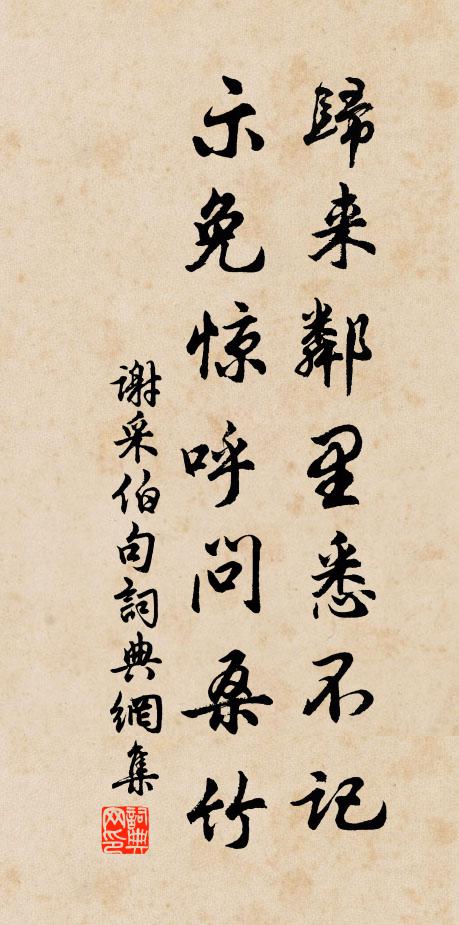 歸来鄰里悉不记
示免惊呼问桑竹
谢采伯句詞典網集
詞典网印